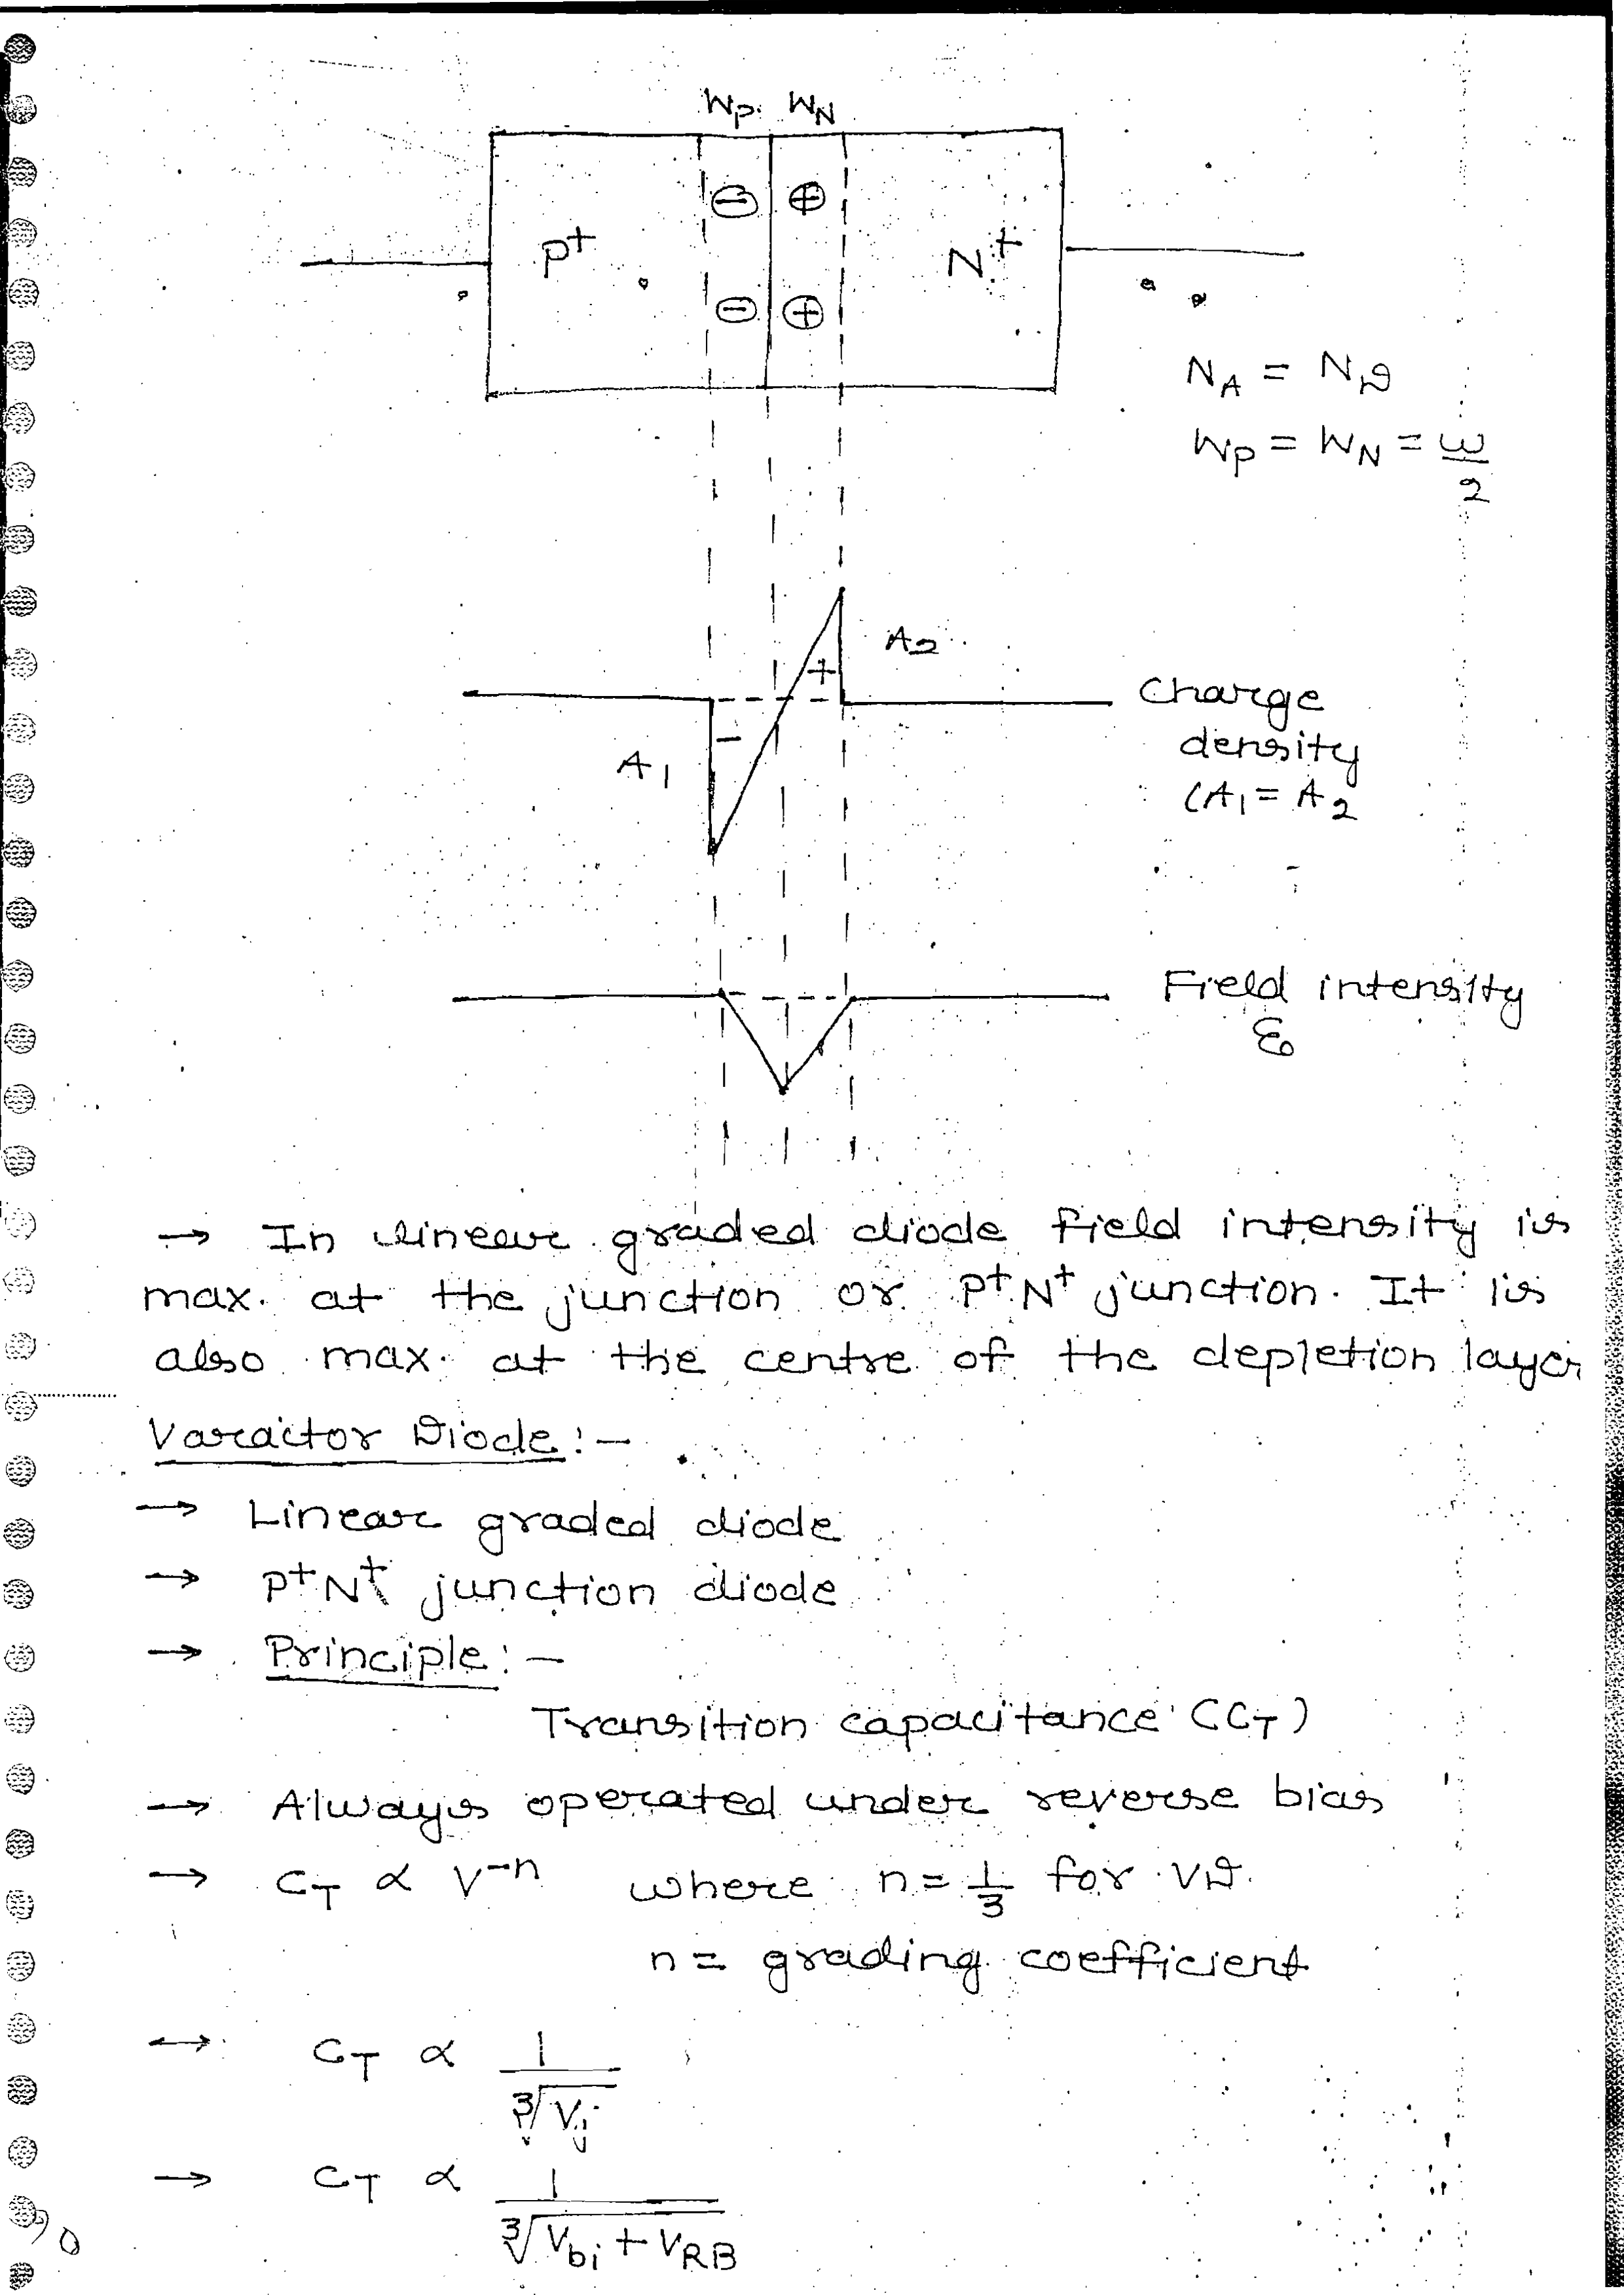 Wp. WN
⊖ ⊕
P+ N+
⊖ ⊕
NA = ND
WP = WN = ω/2
A2
+
Charge
−
density
A1
(A1 = A2
Field intensity
ε0
→ In linear graded diode field intensity is
max. at the junction or P+N+ junction. It is
also max. at the centre of the depletion layer
Varactor Diode :-
→ Linear graded diode
→ P+N+ junction diode
→ Principle :-
Transition capacitance (CT)
→ Always operated under reverse bias
→ CT ∝ V^-n where n = 1/3 for VD.
n = grading coefficient
→ CT ∝ 1/∛Vj
→ CT ∝ 1/∛(Vbi + VRB)
90